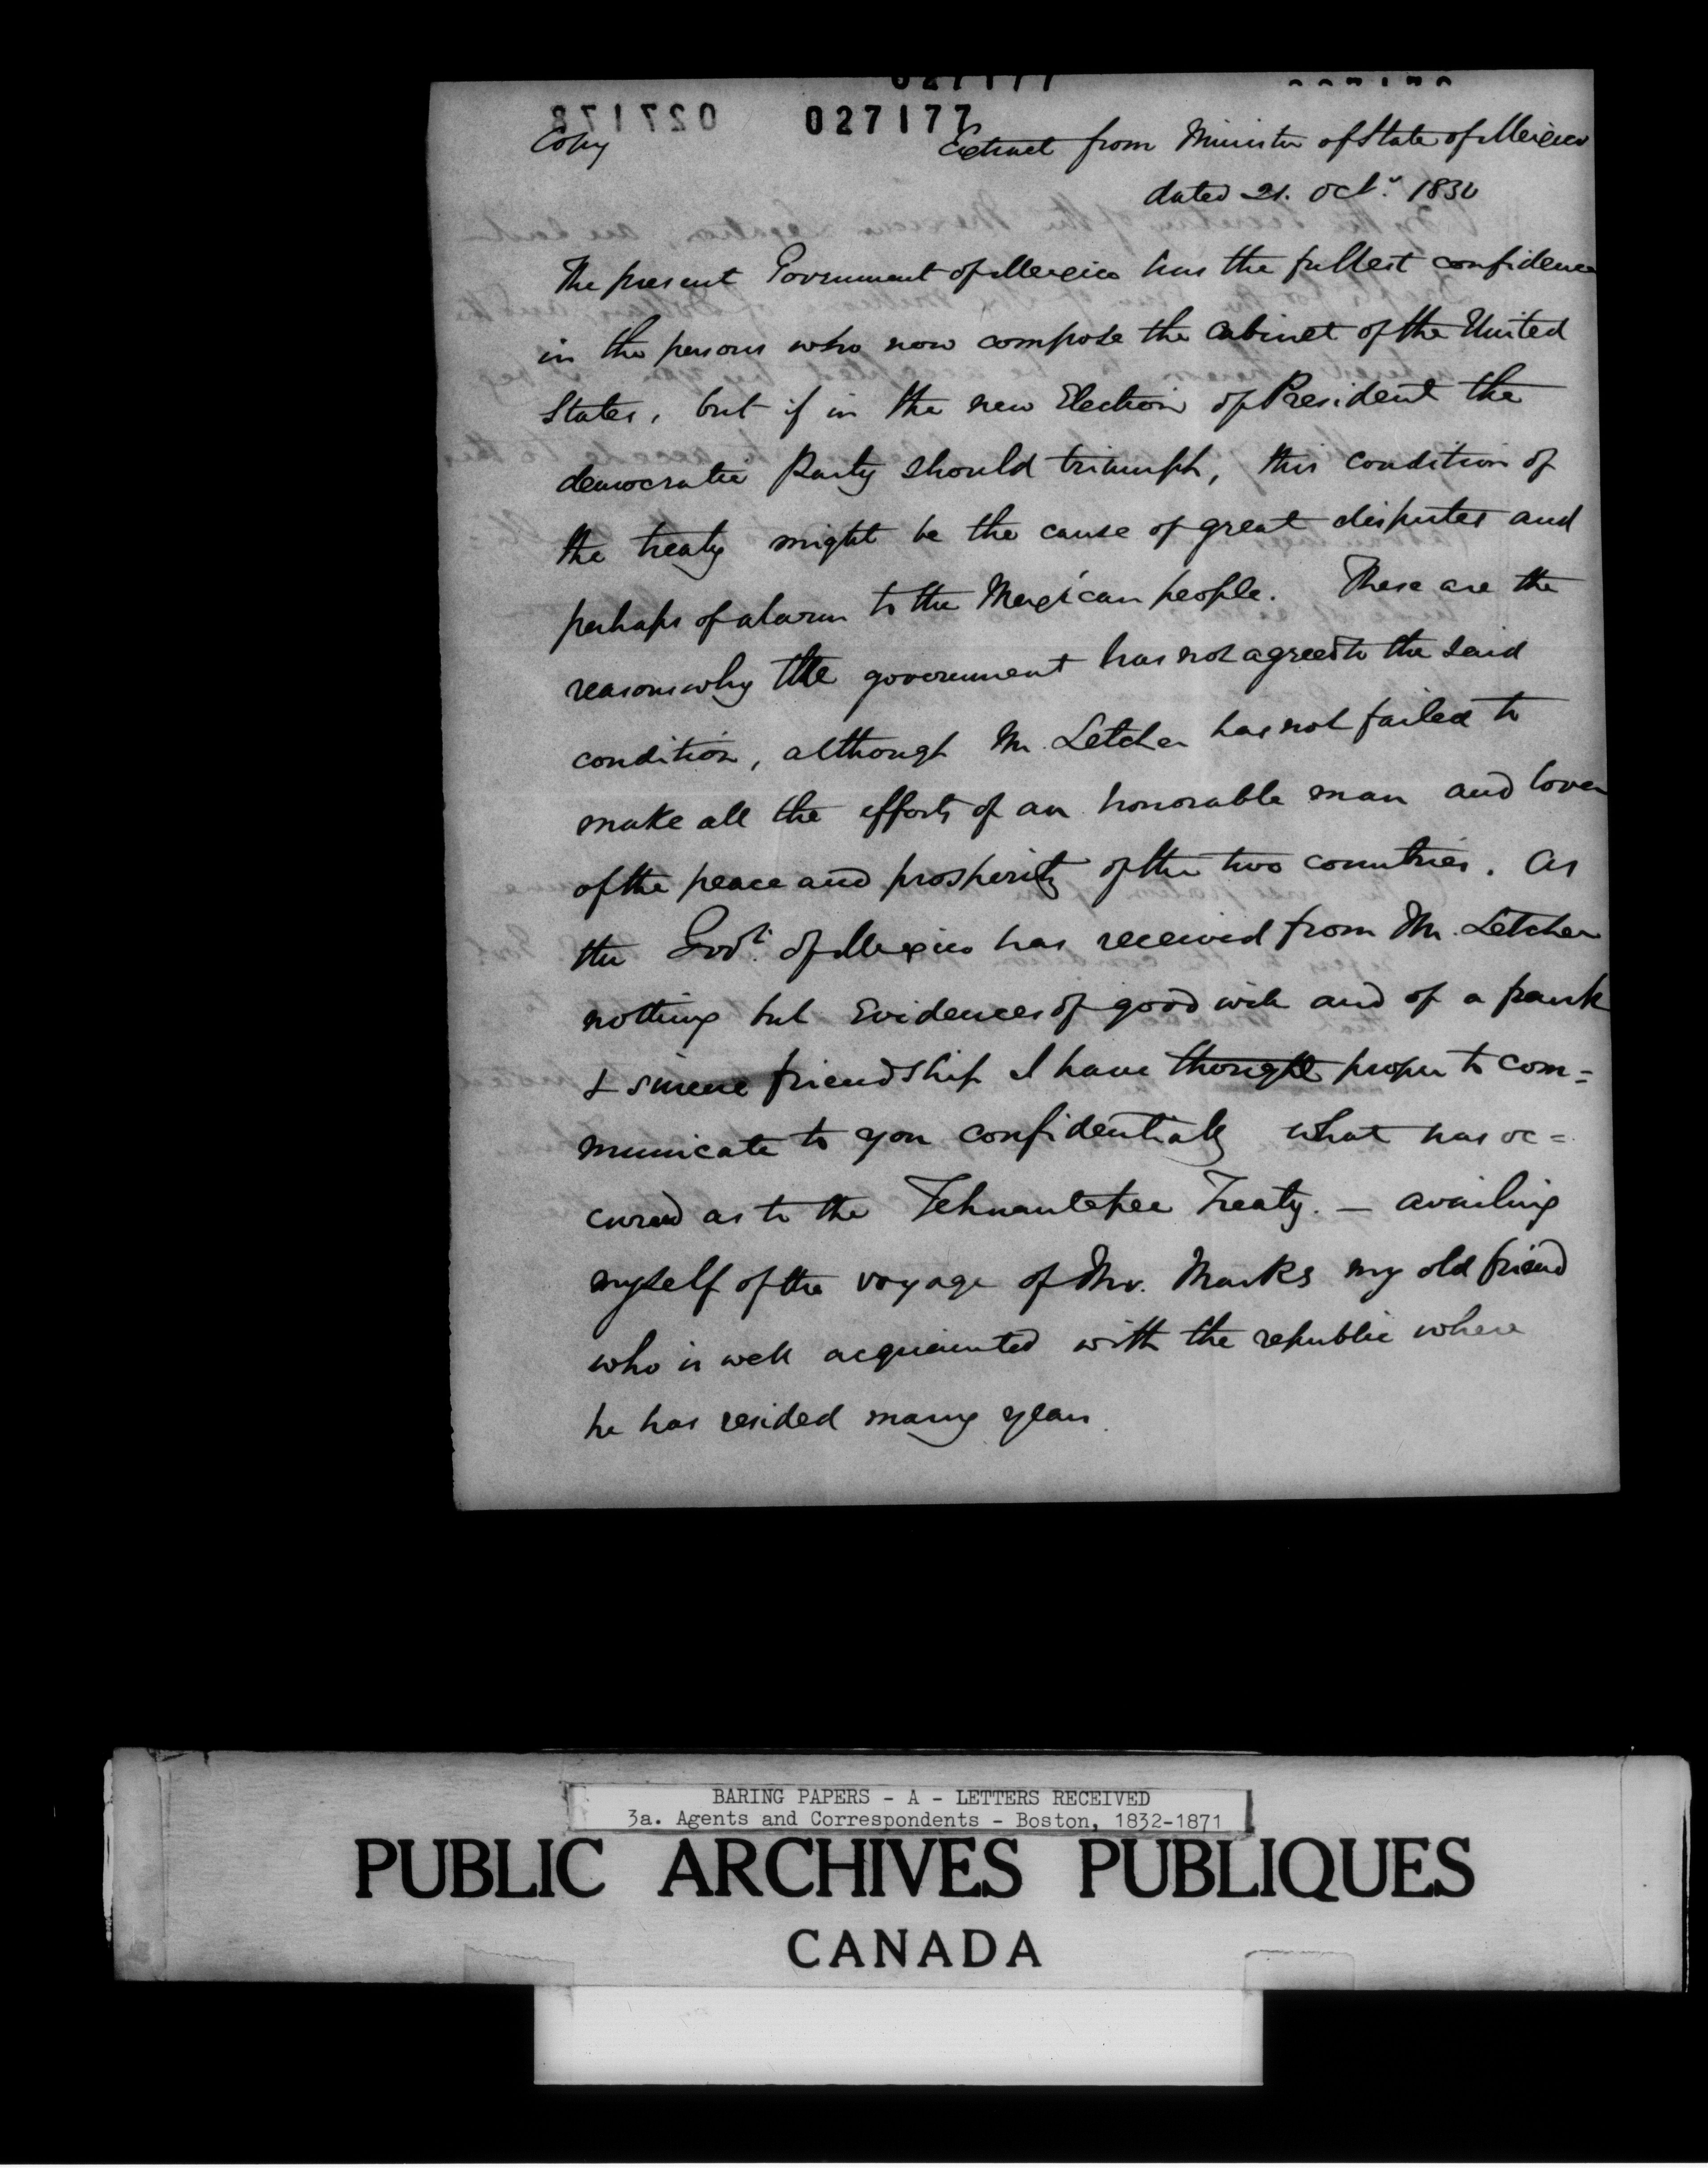 027177
027178
027177
Copy
Extract from Minister of State of Mexico
dated 21. Oct.r 1850
The present Government of Mexico has the fullest confidence
in the persons who now compose the cabinet of the United
States, but if in the new Election of President the
democratic Party should triumph, this condition of
the treaty might be the cause of great disputes and
perhaps of alarm to the Mexican people. These are the
reasons why the government has not agreed to the said
condition, although Mr. Letcher has not failed to
make all the efforts of an honorable man and lover
of the peace and prosperity of the two countries. As
the Govt. of Mexico has received from Mr. Letcher
nothing but evidences of good will and of a frank
& sincere friendship I have thought proper to com=
municate to you confidentially what has oc=
cured as to the Tehuantepec Treaty. — availing
myself of the voyage of Mr. Marks my old friend
who is well acquainted with the republic where
he has resided many years.
BARING PAPERS - A - LETTERS RECEIVED
3a. Agents and Correspondents - Boston, 1832-1871
PUBLIC ARCHIVES PUBLIQUES
CANADA